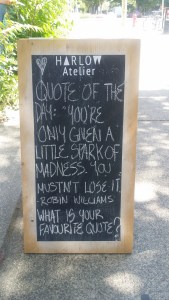 HARLOW
Atelier
QUOTE OF THE
DAY: "YOU'RE
ONLY GIVEN A
LITTLE SPARK OF
MADNESS. YOU
MUSTN'T LOSE IT.
-ROBIN WILLIAMS
WHAT IS YOUR
FAVOURITE QUOTE?